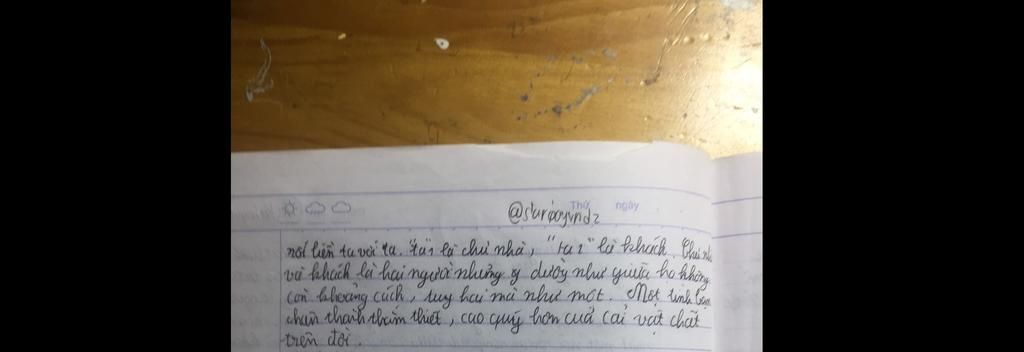 Thứ ngày
@starboyvnd2
nối liền ta với ta. "ta" là chủ nhà, "ta 2" là khách. Chủ nhà
và khách là hai người nhưng dường như giữa họ không
còn khoảng cách, tuy hai mà như một. Một tình bạn
chân thành thắm thiết, cao quý hơn cả vật chất
trên đời.